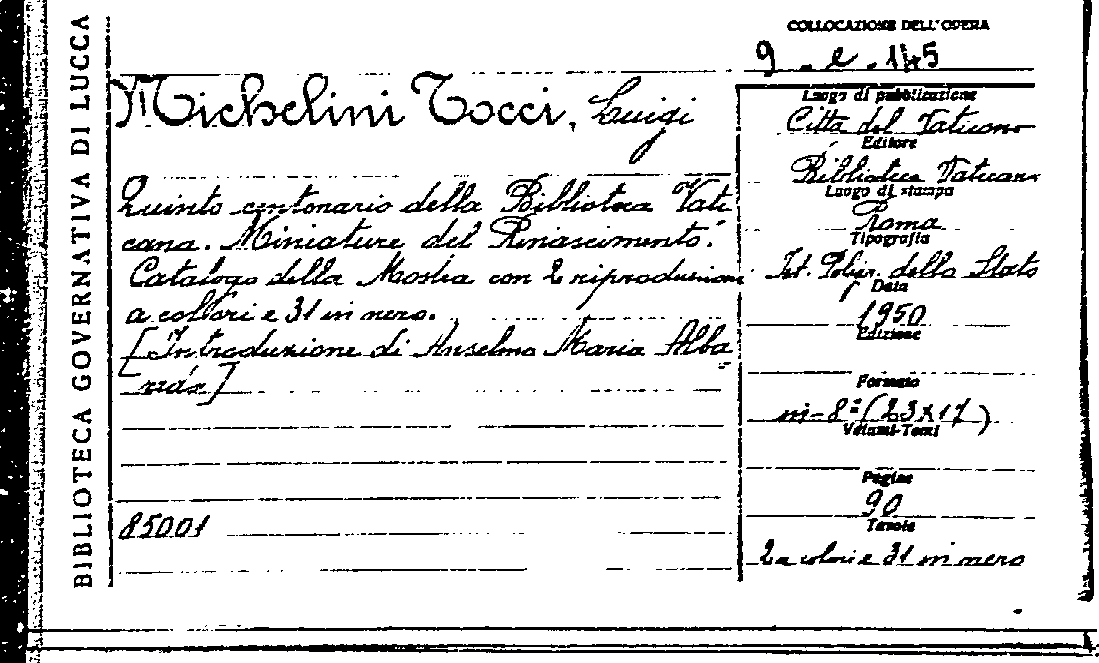 BIBLIOTECA GOVERNATIVA DI LUCCA
COLLOCAZIONE DELL'OPERA
9 - e - 145
Michelini Tocci, Luigi
Quinto centenario della Biblioteca Vati
cana. Miniature del Rinascimento.
Catalogo della Mostra con 2 riproduzioni
a colori e 31 in nero.
[Introduzione di Anselmo Maria Alba
=
reda]
85001
Luogo di pubblicazione
Città del Vaticano
Editore
Biblioteca Vaticana
Luogo di stampa
Roma
Tipografia
Ist. Poligr. dello Stato
Data
1950
Edizione
Formato
in-8º (23x17)
Volumi-Tomi
Pagine
90
Tavole
2 a colori e 31 in nero